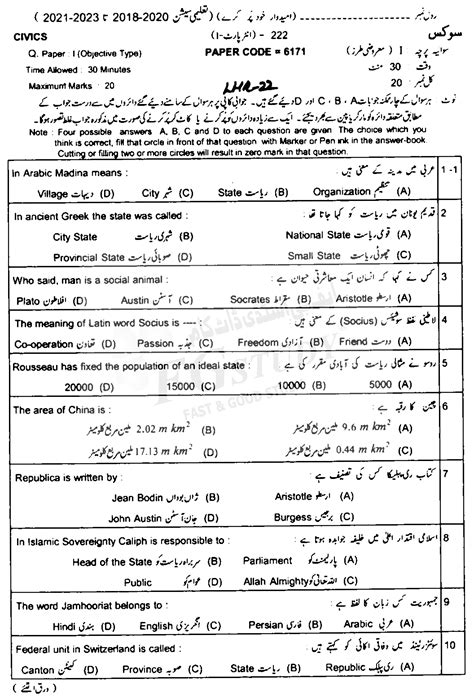 رول نمبر (امیدوار خود پر کرے) (تعلیمی سیشن 2020-2018 تا 2023-2021)
CIVICS (انٹر پارٹ-I) - 222 سوکس
Q. Paper : I (Objective Type) PAPER CODE = 6171 سوالیہ پرچہ I (معروضی طرز)
Time Allowed : 30 Minutes وقت 30 منٹ
Maximum Marks : 20 LHR-22 کل نمبر 20
نوٹ ہر سوال کے چار ممکنہ جوابات A ، B ، C اور D دیئے گئے ہیں۔ جوابی کاپی پر ہر سوال کے سامنے دیئے گئے دائروں میں سے درست جواب کے
مطابق متعلقہ دائرہ کو مارکر یا پین سے بھر دیجئے۔ ایک سے زیادہ دائروں کو پُر کرنے یا کاٹ کر پُر کرنے کی صورت میں مذکورہ جواب غلط تصور ہوگا۔
Note : Four possible answers A, B, C and D to each question are given The choice which you
think is correct, fill that circle in front of that question with Marker or Pen ink in the answer-book.
Cutting or filling two or more circles will result in zero mark in that question.
In Arabic Madina means : عربی میں مدینہ کے معنی ہیں : 1 -1
Village دیہات (D) City شہر (C) State ریاست (B) Organization تنظیم (A)
In ancient Greek the state was called : قدیم یونان میں ریاست کو کہا جاتا تھا : 2
City State شہری ریاست (B) National State قومی ریاست (A)
Provincial State صوبائی ریاست (D) Small State چھوٹی ریاست (C)
Who said, man is a social animal : کس نے کہا کہ انسان ایک معاشرتی حیوان ہے : 3
Plato افلاطون (D) Austin آسٹن (C) Socrates سقراط (B) Aristotle ارسطو (A)
The meaning of Latin word Socius is ---- : لاطینی لفظ سوشیئس (Socius) کے معنی ہیں : 4
Co-operation تعاون (D) Passion جذبہ (C) Freedom آزادی (B) Friend دوست (A)
Rousseau has fixed the population of an ideal state : روسو نے مثالی ریاست کی آبادی مقرر کی ہے : 5
20000 (D) 15000 (C) 10000 (B) 5000 (A)
The area of China is : چین کا رقبہ ہے : 6
2.02 m km² ملین مربع کلومیٹر (B) 9.6 m km² ملین مربع کلومیٹر (A)
17.13 m km² ملین مربع کلومیٹر (D) 0.44 m km² ملین مربع کلومیٹر (C)
Republica is written by : کتاب ری پبلیکا کس کی تصنیف ہے : 7
Jean Bodin ژاں بوداں (B) Aristotle ارسطو (A)
John Austin جان آسٹن (D) Burgess برجیس (C)
In Islamic Sovereignty Caliph is responsible to : اسلامی اقتدار اعلیٰ میں خلیفہ جوابدہ ہوتا ہے : 8
Head of the State سربراہ ریاست کو (B) Parliament پارلیمنٹ کو (A)
Public عوام کو (D) Allah Almighty اللہ تعالیٰ کو (C)
The word Jamhooriat belongs to : جمہوریت کس زبان کا لفظ ہے : 9
Hindi ہندی (D) English انگریزی (C) Persian فارسی (B) Arabic عربی (A)
Federal unit in Switzerland is called : سوئٹزرلینڈ میں وفاقی اکائی کو کہتے ہیں : 10
Canton کینٹن (D) Province صوبہ (C) State ریاست (B) Republic ری پبلک (A)
(ورق الٹئے)